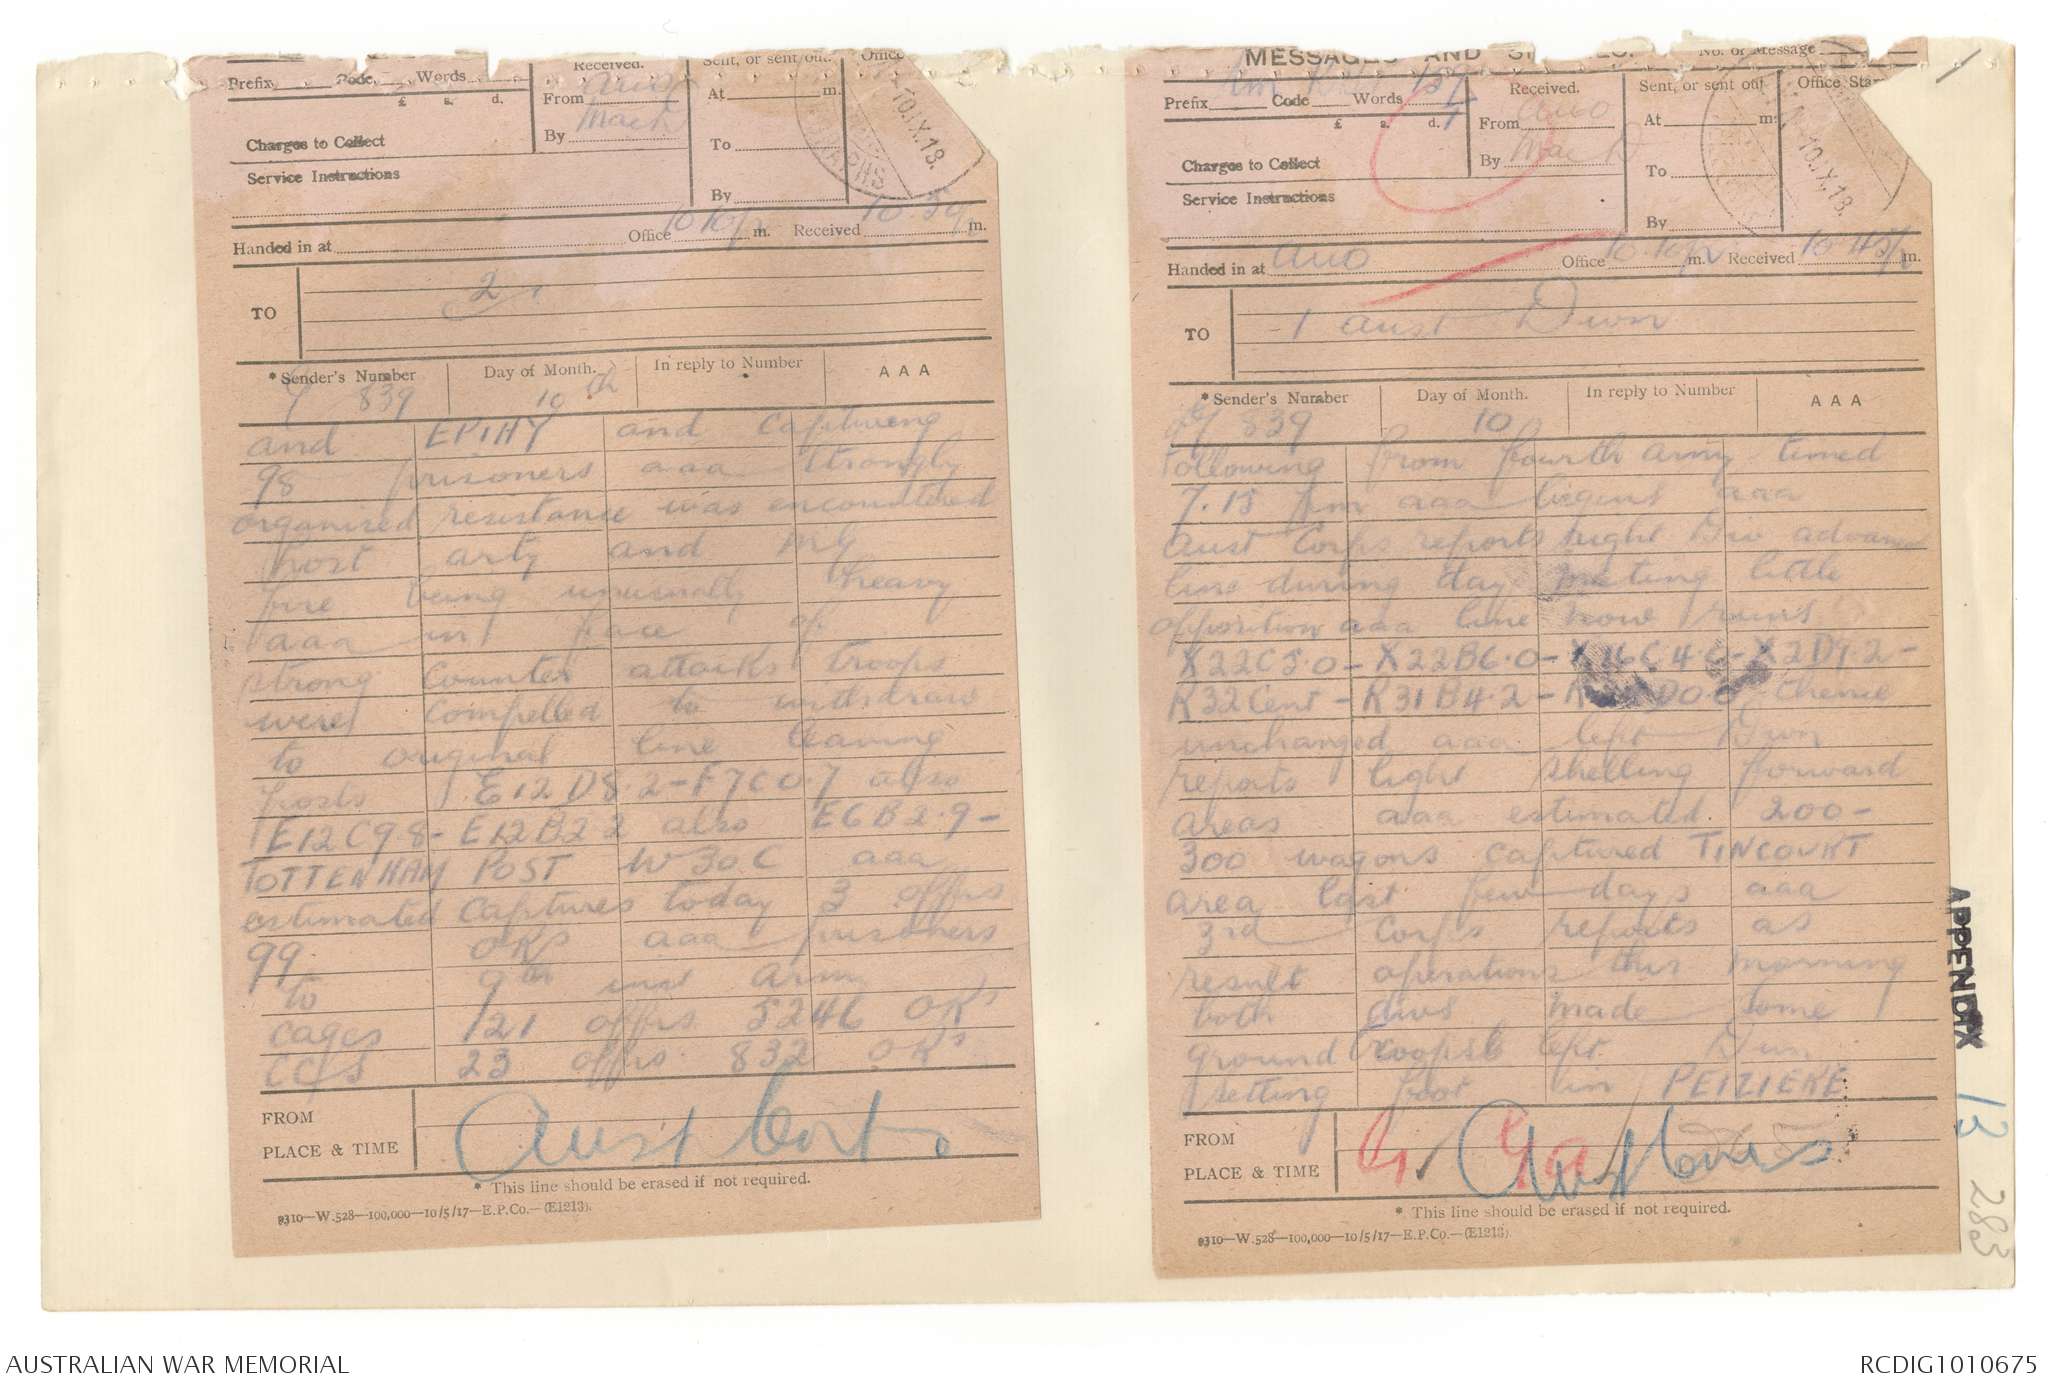 Prefix Code Words
£ s. d.
Charges to Collect
Service Instructions
Received.
From Aus
By Mack
Sent, or sent out.
At m.
To
By
Office
10.IX.18.
Handed in at Office 10.10 p m. Received 10.50 p m.
TO 2
* Sender's Number Day of Month. In reply to Number AAA
G 839 10th
and EPIHY and capturing
98 prisoners aaa strongly
organised resistance was encountered
host arty and MG
fire being unusually heavy
aaa in face of
strong counter attacks troops
were compelled to withdraw
to original line leaving
posts E12D8.2-F7C0.7 also
E12C9.8- E12B22 also E6B2.9-
TOTTENHAM POST W30C aaa
estimated captures today 3 offrs
99 ORs aaa prisoners
to 9th inst Army
cages 121 offrs 5246 ORs
CCS 23 offrs 832 ORs
FROM
PLACE & TIME
Aust Corps
* This line should be erased if not required.
9310—W.528—100,000—10/5/17—E.P.Co.—(E1213).
MESSAGES AND SIGNALS.
No. of Message
1
Prefix Code Words
£ s. d.
Charges to Collect
Service Instructions
Received.
From Auo
By Mack
Sent, or sent out
At m.
To
By
Office Sta
10.IX.18.
Handed in at Auo Office 10.10 p m. Received 10.45 p m.
TO 1 Aust Divn
* Sender's Number Day of Month. In reply to Number AAA
G 839 10
Following from fourth army timed
7.15 pm aaa begins aaa
Aust Corps reports right Div advanced
line during day meeting little
opposition aaa line now runs
X22C5.0- X22B6.0- X16C4.6- X2D9.2-
R32Cent- R31B4.2- D0.0 thence
unchanged aaa left Divn
reports light shelling forward
areas aaa estimated 200-
300 wagons captured TINCOURT
area last few days aaa
3rd Corps reports as
result operations this morning
both divs made some
ground troops left Divn
setting foot in PEIZIERE
FROM
PLACE & TIME
Aust Corps
* This line should be erased if not required.
9310—W.528—100,000—10/5/17—E.P.Co.—(E1213).
APPENDIX 13
283
AUSTRALIAN WAR MEMORIAL
RCDIG1010675